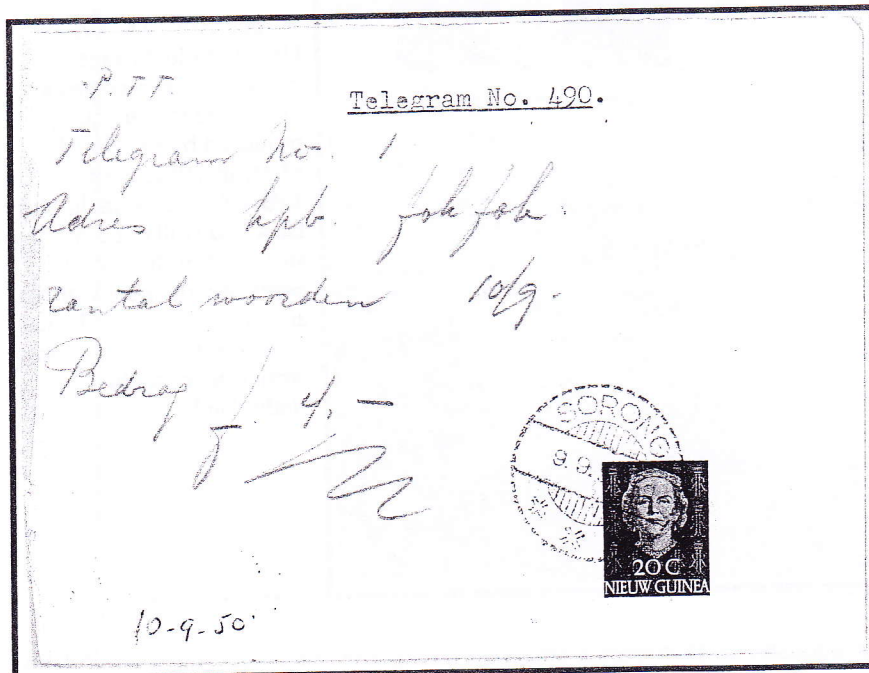 P.T.T.
Telegram No. 490.
Telegram no. 1
Adres hpb. fak fak.
aantal woorden 10/9.
Bedrag f. 4,-
SORONG
9.9.
20 C
NIEUW GUINEA
10-9-50